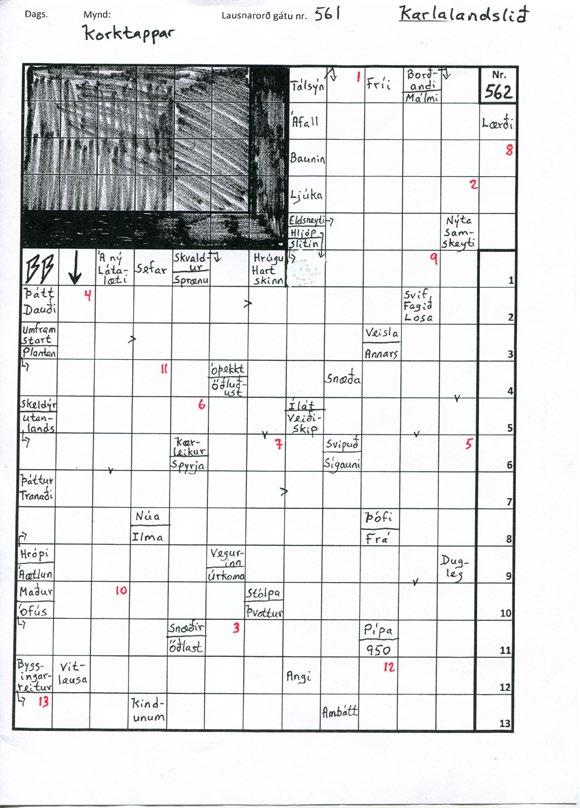 Dags. Mynd: Lausnarorð gátu nr. 561 Karlalandslið
Korktappar
Tálsýn 1 Fríi Borð-
andi
Málmi
Nr.
562
Áfall Lærði
Baunin 8
Ljúka 2
Eldsneyti
Hljóp
Slitin
Nýta
Sam-
skeyti
BB Á ný
Láta-
læti
Sefar Skvald-
ur
Sprænu
Hrúgu
Hart
skinn
9 1
Þátt
Dauði
4 > Svif
Fagið
Losa
2
Umfram
start
Plantan
> Veisla
Annars
3
11 Óþekkt
Öðluð-
ust
Snæða 4
Skeldýr
Utan-
lands
6 Ílát
Veiði-
skip
5
Kær-
leikur
Spyrja
7 Svipuð
Sígauni
5 6
Þáttur
Tranaði
> 7
Núa
Ilma
Þófi
Frá
8
Hrópi
Áætlun
Vegur-
inn
Úrkoma
Dug-
leg
9
Maður
Ófús
10 Stólpa
Þvottur
10
Snæðir
Öðlast
3 Pípa
950
11
Bygg-
ingar-
reitur
Vit-
lausa
Angi 12 12
13 Kind-
unum
Ambátt 13